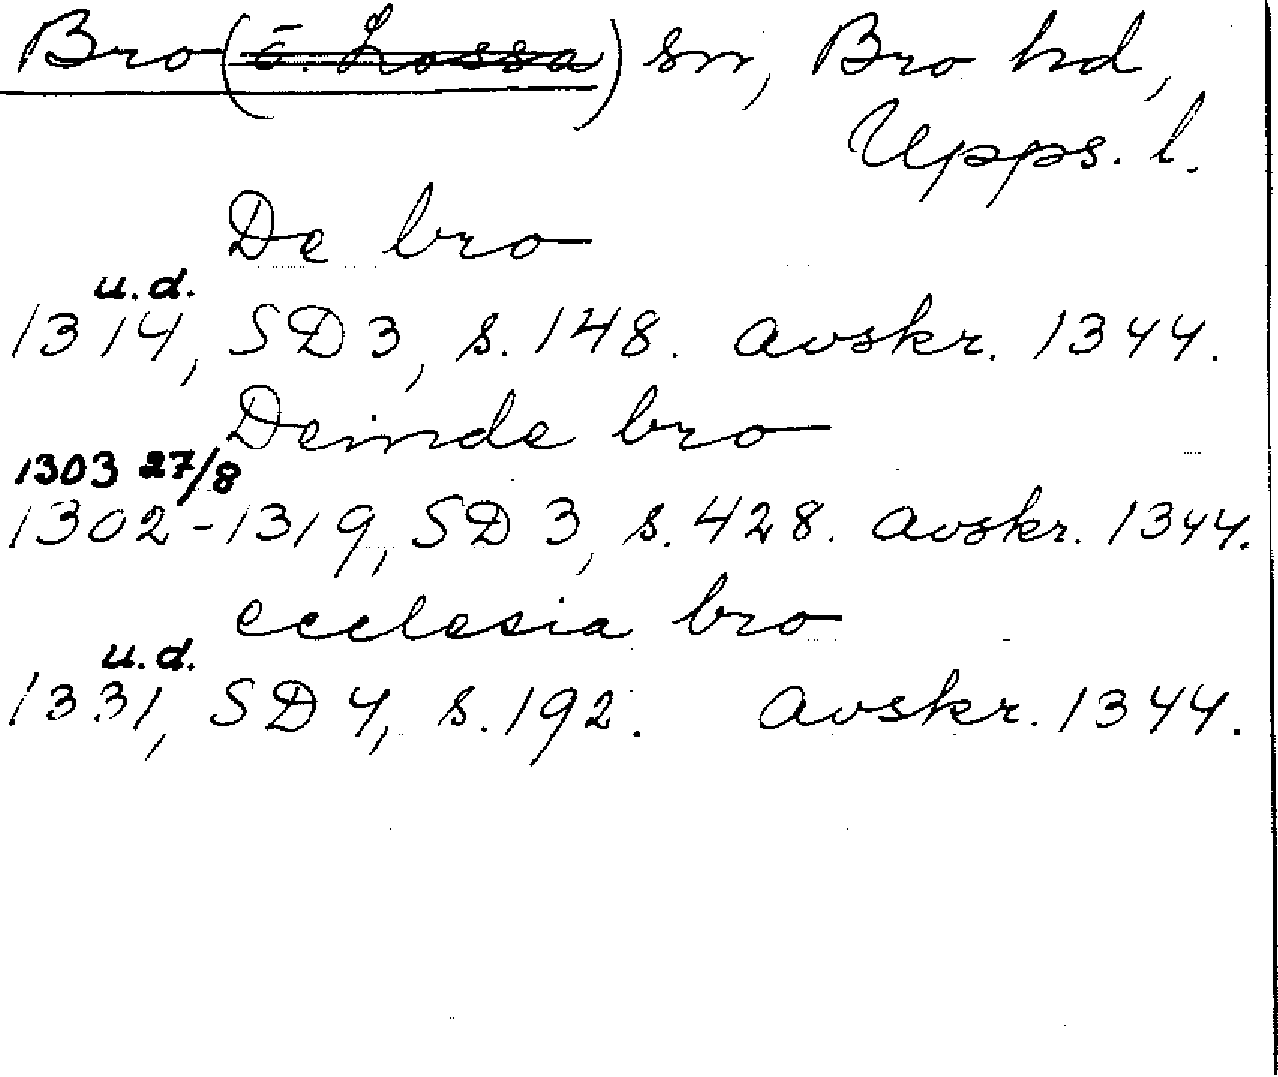 Bro (o. Lossa) sn, Bro hd,
Upps. l.
De bro
u.d.
1314, SD 3, s. 148. avskr. 1344.
Deinde bro
1303 27/8
1302-1319, SD 3, s. 428. avskr. 1344.
ecclesia bro
u.d.
1331, SD 4, s. 192. avskr. 1344.